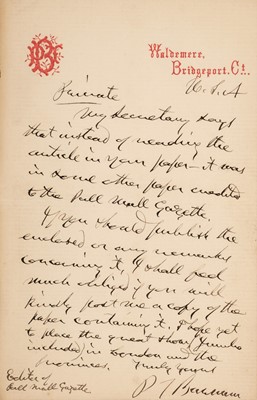 PTB
Waldemere,
Bridgeport, Ct.
U.S.A
Private
My Secretary says
that instead of reading the
article in your paper - it was
in some other paper credited
to the Pall Mall Gazette.
If you should publish the
enclosed or any remarks
concerning it, I shall feel
much obliged if you will
kindly post me a copy of the
paper containing it. I hope yet
to place the great show, Jumbo
included, in London and the
provinces. Truly yours
P T Barnum
Editor of
Pall Mall Gazette